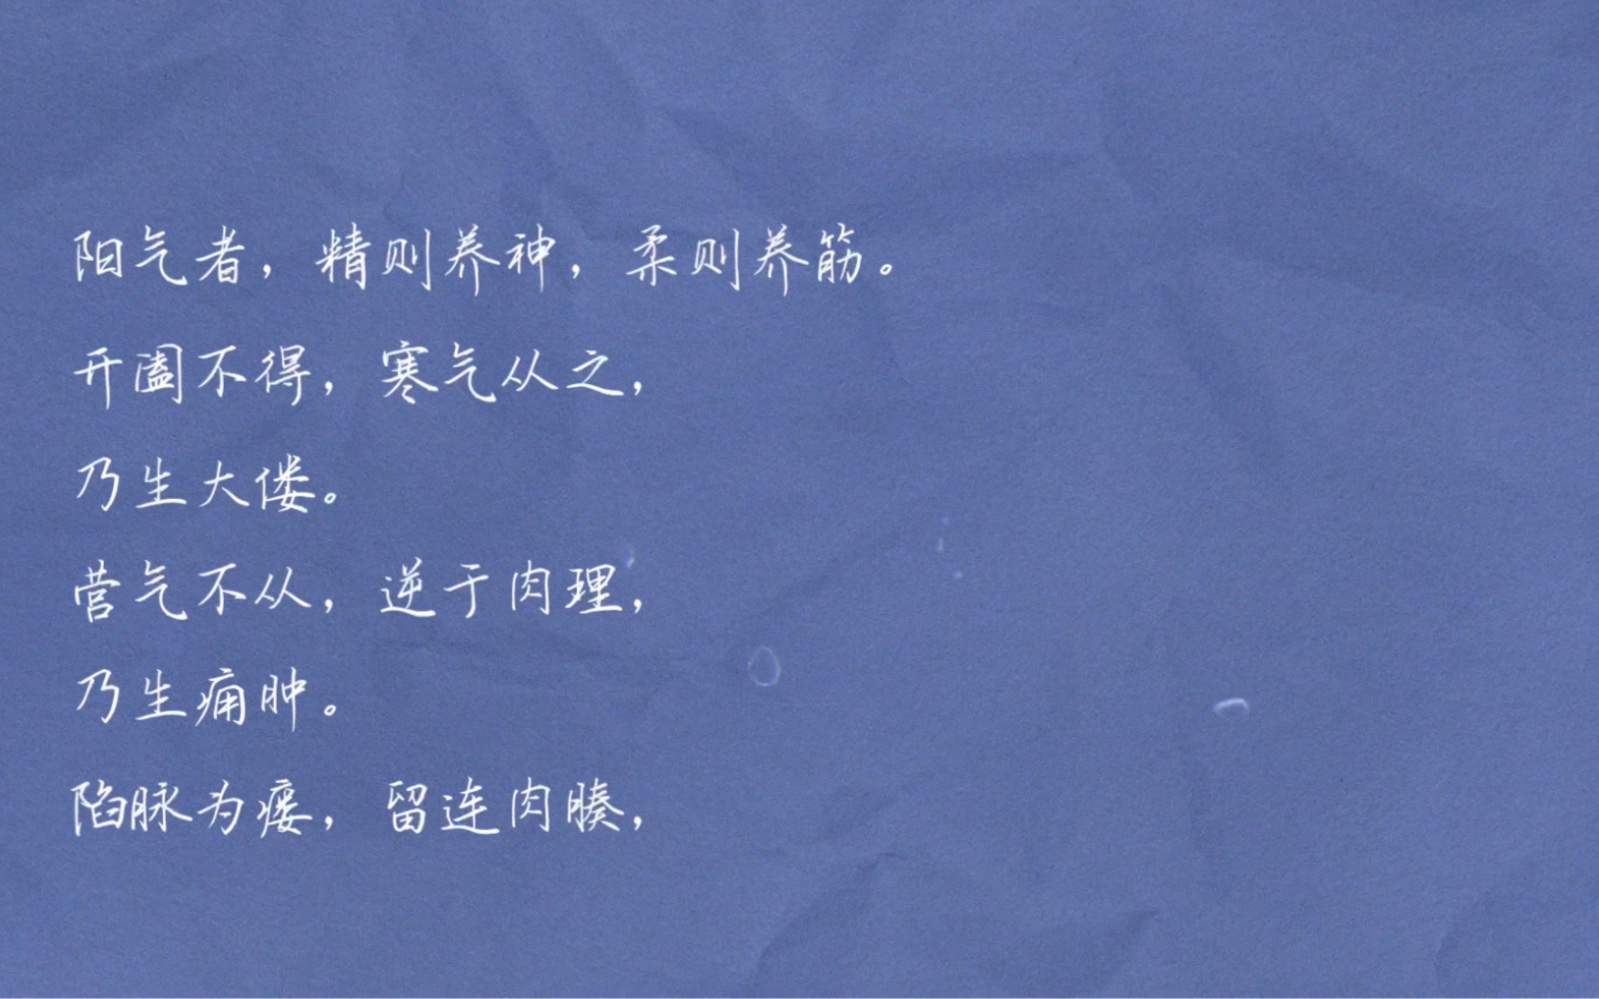 阳气者，精则养神，柔则养筋。
开阖不得，寒气从之，
乃生大偻。
营气不从，逆于肉理，
乃生痈肿。
陷脉为瘘，留连肉腠，